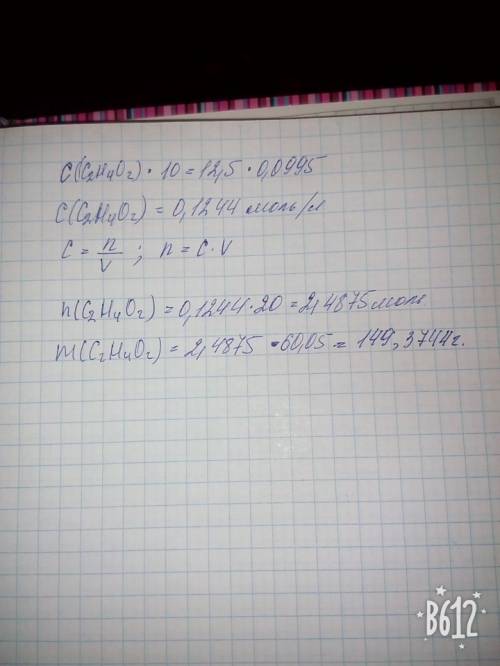 C(C₂H₄O₂) · 10 = 12,5 · 0,0995
C(C₂H₄O₂) = 0,1244 моль/л
C = n/V ; n = C · V
n(C₂H₄O₂) = 0,1244 · 20 = 2,4875 моль
m(C₂H₄O₂) = 2,4875 · 60,05 = 149,3744 г.
B612